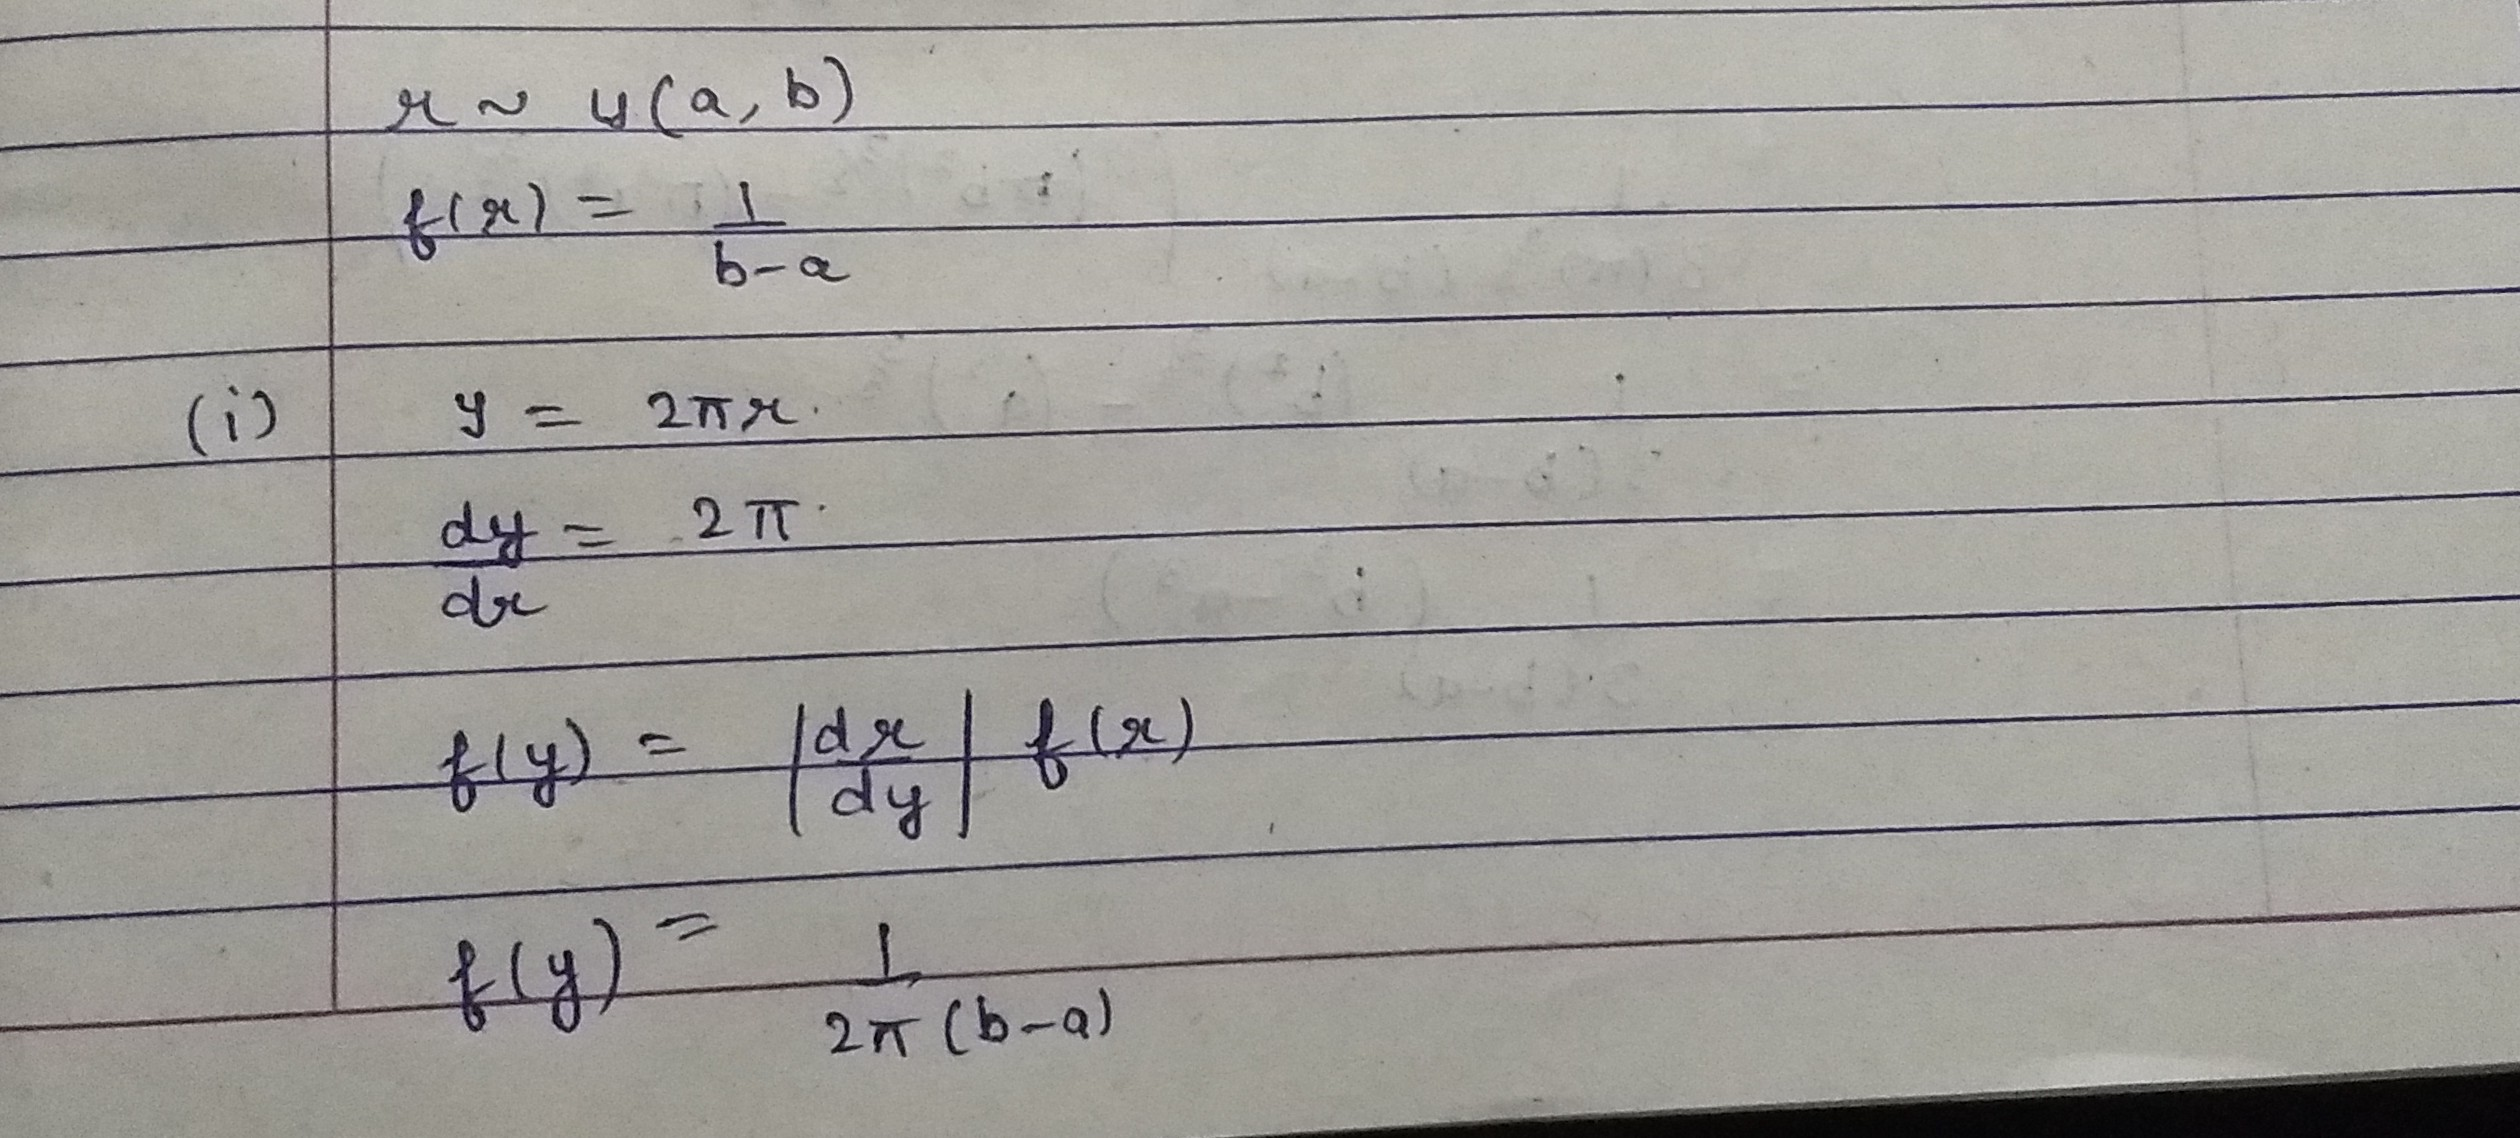 r ~ U(a, b)
f(r) = 1/(b-a)
(i) y = 2πr.
dy/dr = 2π.
f(y) = |dr/dy| f(r)
f(y) = 1/(2π(b-a))